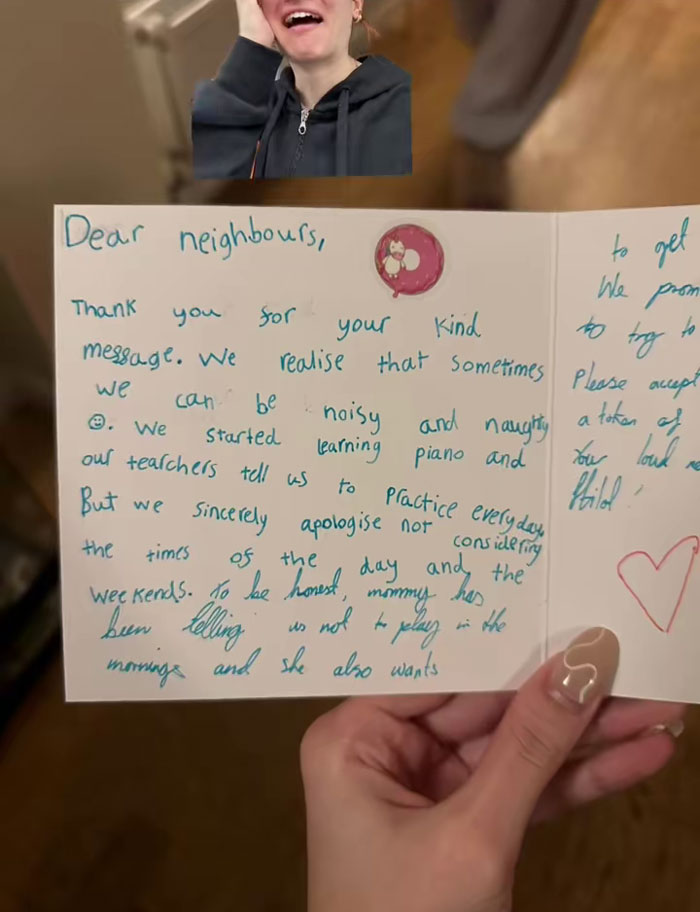 Dear neighbours,
Thank you for your kind
message. We realise that sometimes
we can be noisy and naughty
☺. We started learning piano and
our tearchers tell us to practice everyday.
But we sincerely apologise not considering
the times of the day and the
weekends. To be honest, mommy has
been telling us not to play in the
mornings and she also wants
to get
We prom
to try to
Please accept
a token of
Your loud